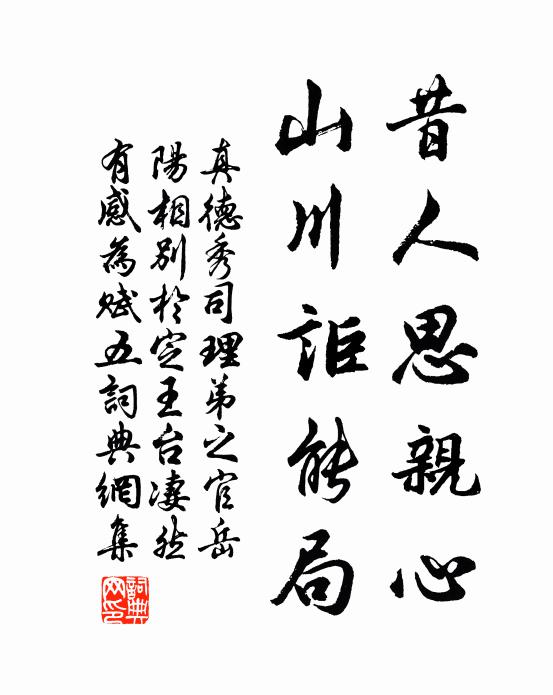 昔人思親心
山川詎能局
真德秀司理弟之官岳
陽相別於定王台淒然
有感為賦五詞典網集
詞典網印